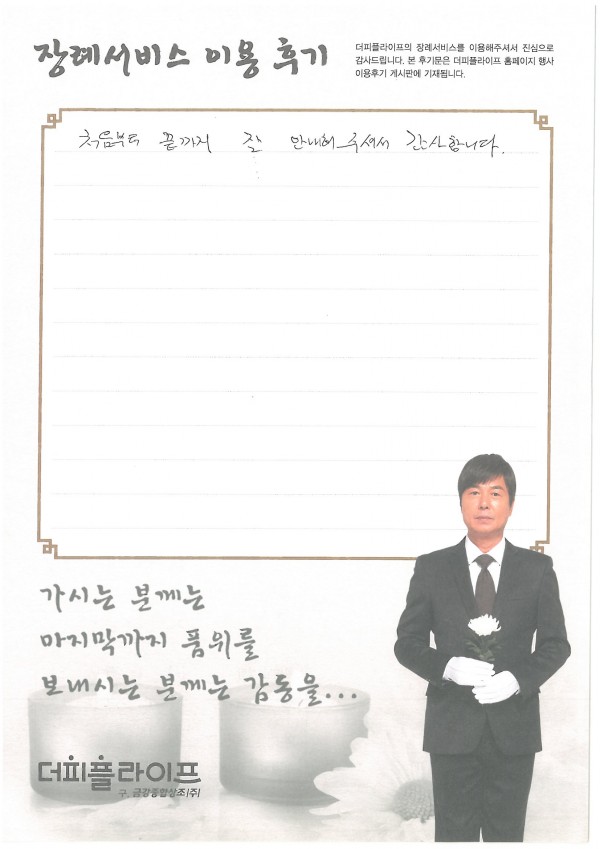 장례서비스 이용 후기
더피플라이프의 장례서비스를 이용해주셔서 진심으로
감사드립니다. 본 후기문은 더피플라이프 홈페이지 행사
이용후기 게시판에 기재됩니다.
처음부터 끝까지 잘 안내해 주셔서 감사합니다.
가시는 분께는
마지막까지 품위를
보내시는 분께는 감동을...
더피플라이프
구. 금강종합상조(주)